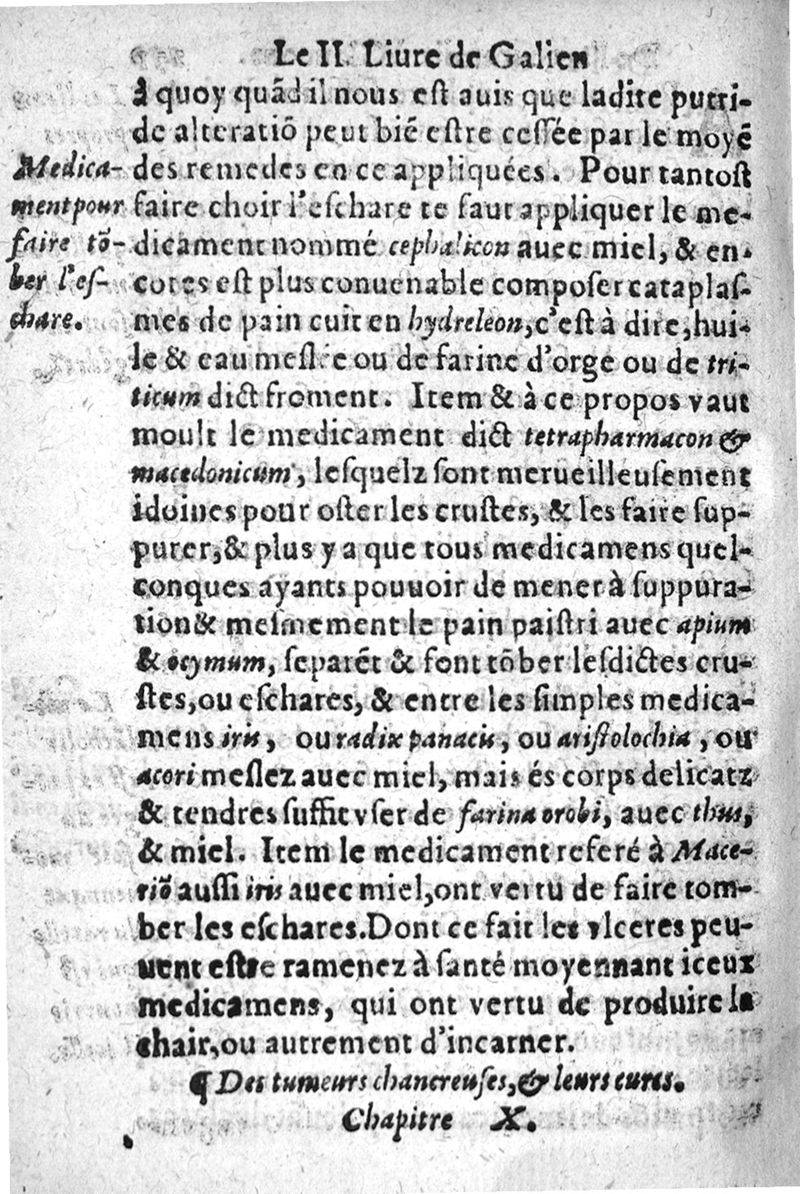 Le II. Liure de Galien
à quoy quãd il nous est auis que ladite putri-
de alteratiõ peut biẽ estre cessée par le moyẽ
des remedes en ce appliquées. Pour tantost
faire choir l'eschare te faut appliquer le me-
dicament nommé cephalicon auec miel, & en-
cores est plus conuenable composer cataplas-
mes de pain cuit en hydreleon, c'est à dire, hui-
le & eau meslée ou de farine d'orge ou de tri-
ticum dict froment. Item & à ce propos vaut
moult le medicament dict tetrapharmacon &
macedonicum, lesquelz sont merueilleusement
idoines pour oster les crustes, & les faire sup-
purer, & plus y a que tous medicamens quel-
conques ayants pouuoir de mener à suppura-
tion & mesmement le pain paistri auec apium
& ocymum, separẽt & font tõber lesdictes cru-
stes, ou eschares, & entre les simples medica-
mens iris, ou radix panacis, ou aristolochia, ou
acori meslez auec miel, mais és corps delicatz
& tendres suffit vser de farina orobi, auec thus,
& miel. Item le medicament referé à Mace-
riõ aussi iris auec miel, ont vertu de faire tom-
ber les eschares. Dont ce fait les vlceres peu-
uent estre ramenez à santé moyennant iceux
medicamens, qui ont vertu de produire la
chair, ou autrement d'incarner.
¶ Des tumeurs chancreuses, & leurs cures.
Chapitre X.
Medica-
ment pour
faire tõ-
ber l'es-
chare.